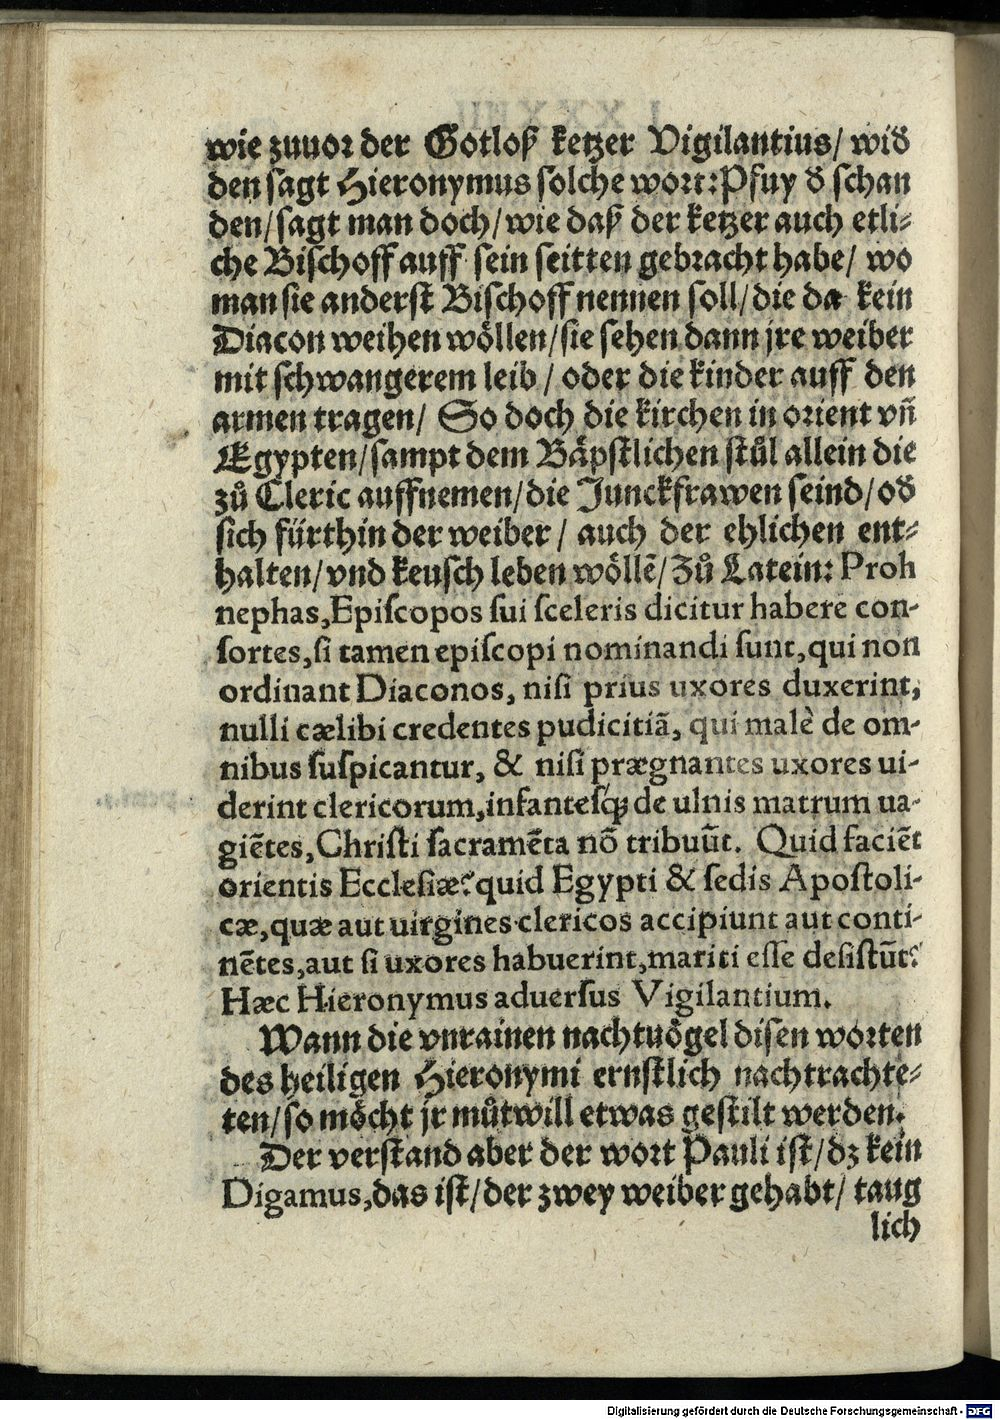 wie zuuor der Gotloß ketzer Vigilantius/ wid
den sagt Hieronymus solche wort: Pfuy d schan
den/ sagt man doch/ wie daß der ketzer auch etli-
che Bischoff auff sein seitten gebracht habe/ wo
man sie anderst Bischoff nennen soll/ die da kein
Diacon weihen wöllen/ sie sehen dann jre weiber
mit schwangerem leib / oder die kinder auff den
armen tragen/ So doch die kirchen in orient vñ
Ægypten/ sampt dem Bäpstlichen stůl allein die
zů Cleric auffnemen/ die Junckfrawen seind/ od
sich fürthin der weiber / auch der ehlichen ent-
halten/ vnd keusch leben wöllẽ/ Zů Latein: Proh
nephas, Episcopos sui sceleris dicitur habere con-
sortes, si tamen episcopi nominandi sunt, qui non
ordinant Diaconos, nisi prius uxores duxerint,
nulli cælibi credentes pudicitiã, qui malè de om-
nibus suspicantur, & nisi prægnantes uxores ui-
derint clericorum, infantesq́; de ulnis matrum ua-
giẽtes, Christi sacramẽta nõ tribuũt. Quid faciẽt
orientis Ecclesiæ? quid Egypti & sedis Apostoli-
cæ, quæ aut uirgines clericos accipiunt aut conti-
nẽtes, aut si uxores habuerint, mariti esse desistũt?
Hæc Hieronymus aduersus Vigilantium.
Wann die vnrainen nachtuögel disen worten
des heiligen Hieronymi ernstlich nachtrachte-
ten/ so möcht jr můtwill etwas gestilt werden.
Der verstand aber der wort Pauli ist/ dz kein
Digamus, das ist/ der zwey weiber gehabt/ taug
lich
Digitalisierung gefördert durch die Deutsche Forschungsgemeinschaft - DFG